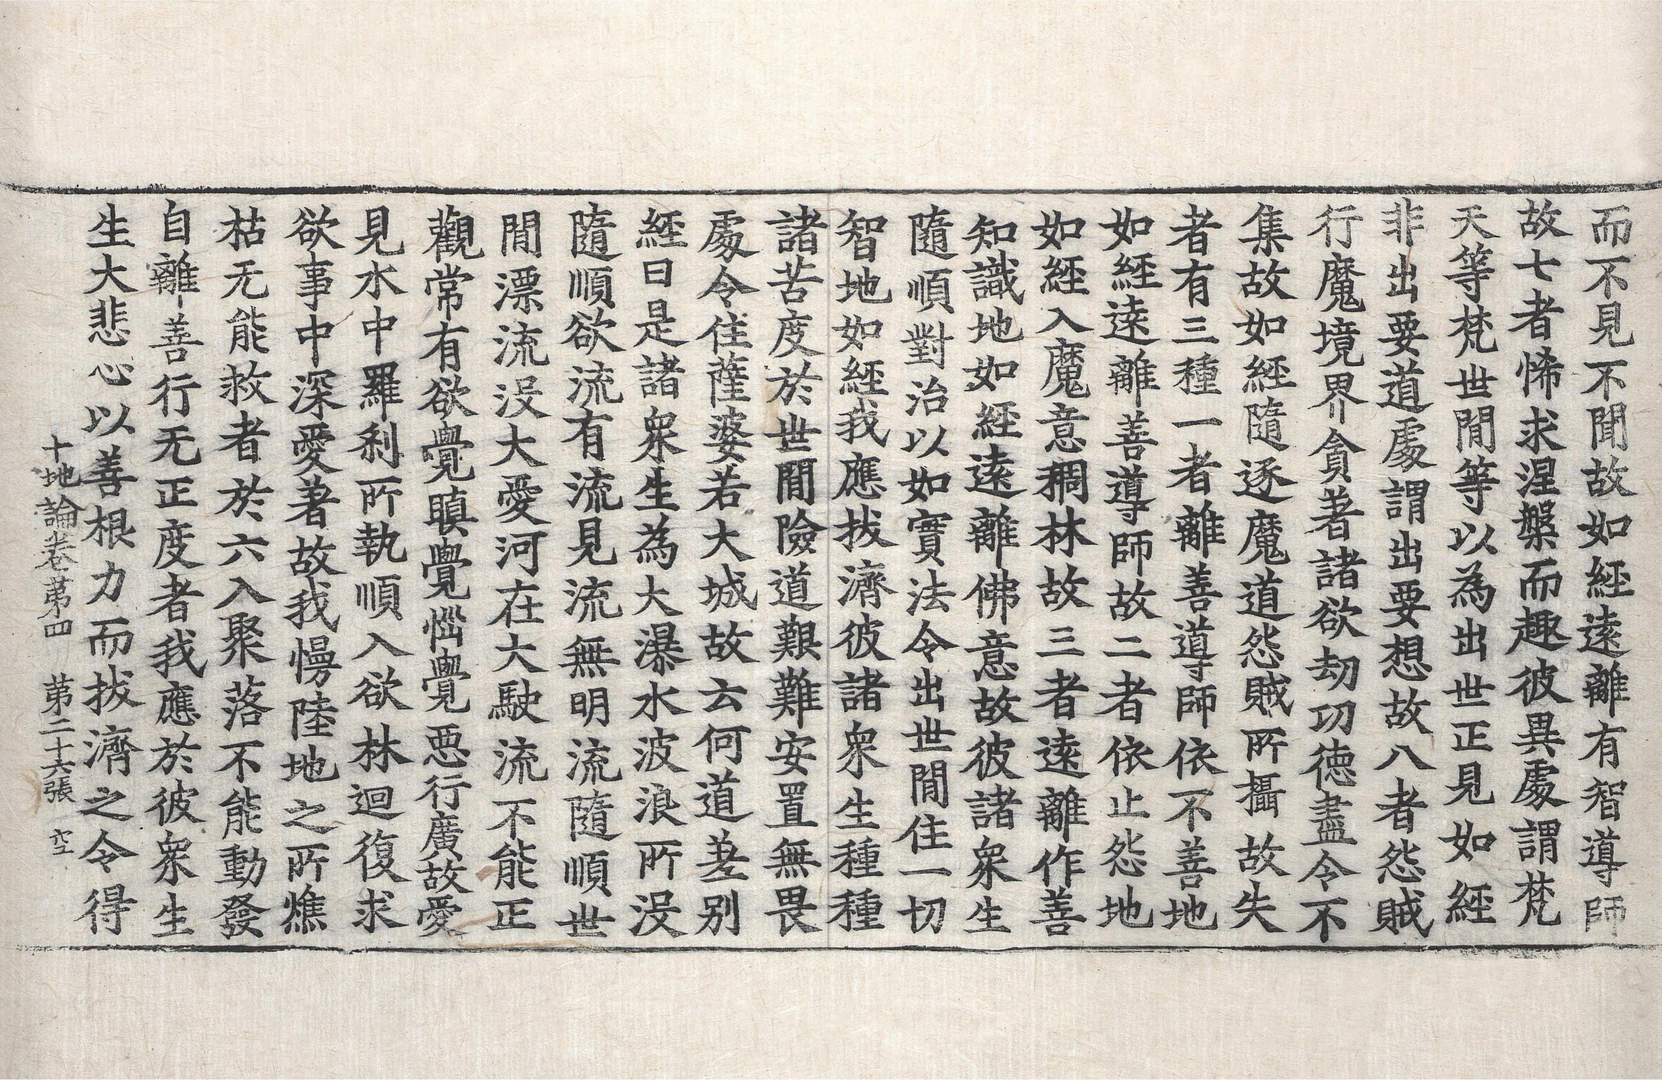 而不見不聞故如經遠離有智導師
故七者悕求涅槃而趣彼異處謂梵
天等梵世閒等以為出世正見如經
非出要道處謂出要想故八者怨賊
行魔境界貪著諸欲劫功德盡令不
集故如經隨逐魔道怨賊所攝故失
者有三種一者離善導師依不善地
如經遠離善導師故二者依止怨地
如經入魔意稠林故三者遠離作善
知識地如經遠離佛意故彼諸衆生
隨順對治以如實法令出世閒住一切
智地如經我應拔濟彼諸衆生種種
諸苦度於世閒險道艱難安置無畏
處令住薩婆若大城故云何道差別
經曰是諸衆生為大瀑水波浪所没
隨順欲流有流見流無明流隨順世
閒漂流没大愛河在大駛流不能正
觀常有欲覺瞋覺惱覺惡行廣故愛
見水中羅刹所執順入欲林迴復求
欲事中深愛著故我慢陸地之所燋
枯无能救者於六入聚落不能動發
自離善行无正度者我應於彼衆生
生大悲心以善根力而拔濟之令得
十地論卷第四 第二十六張 空